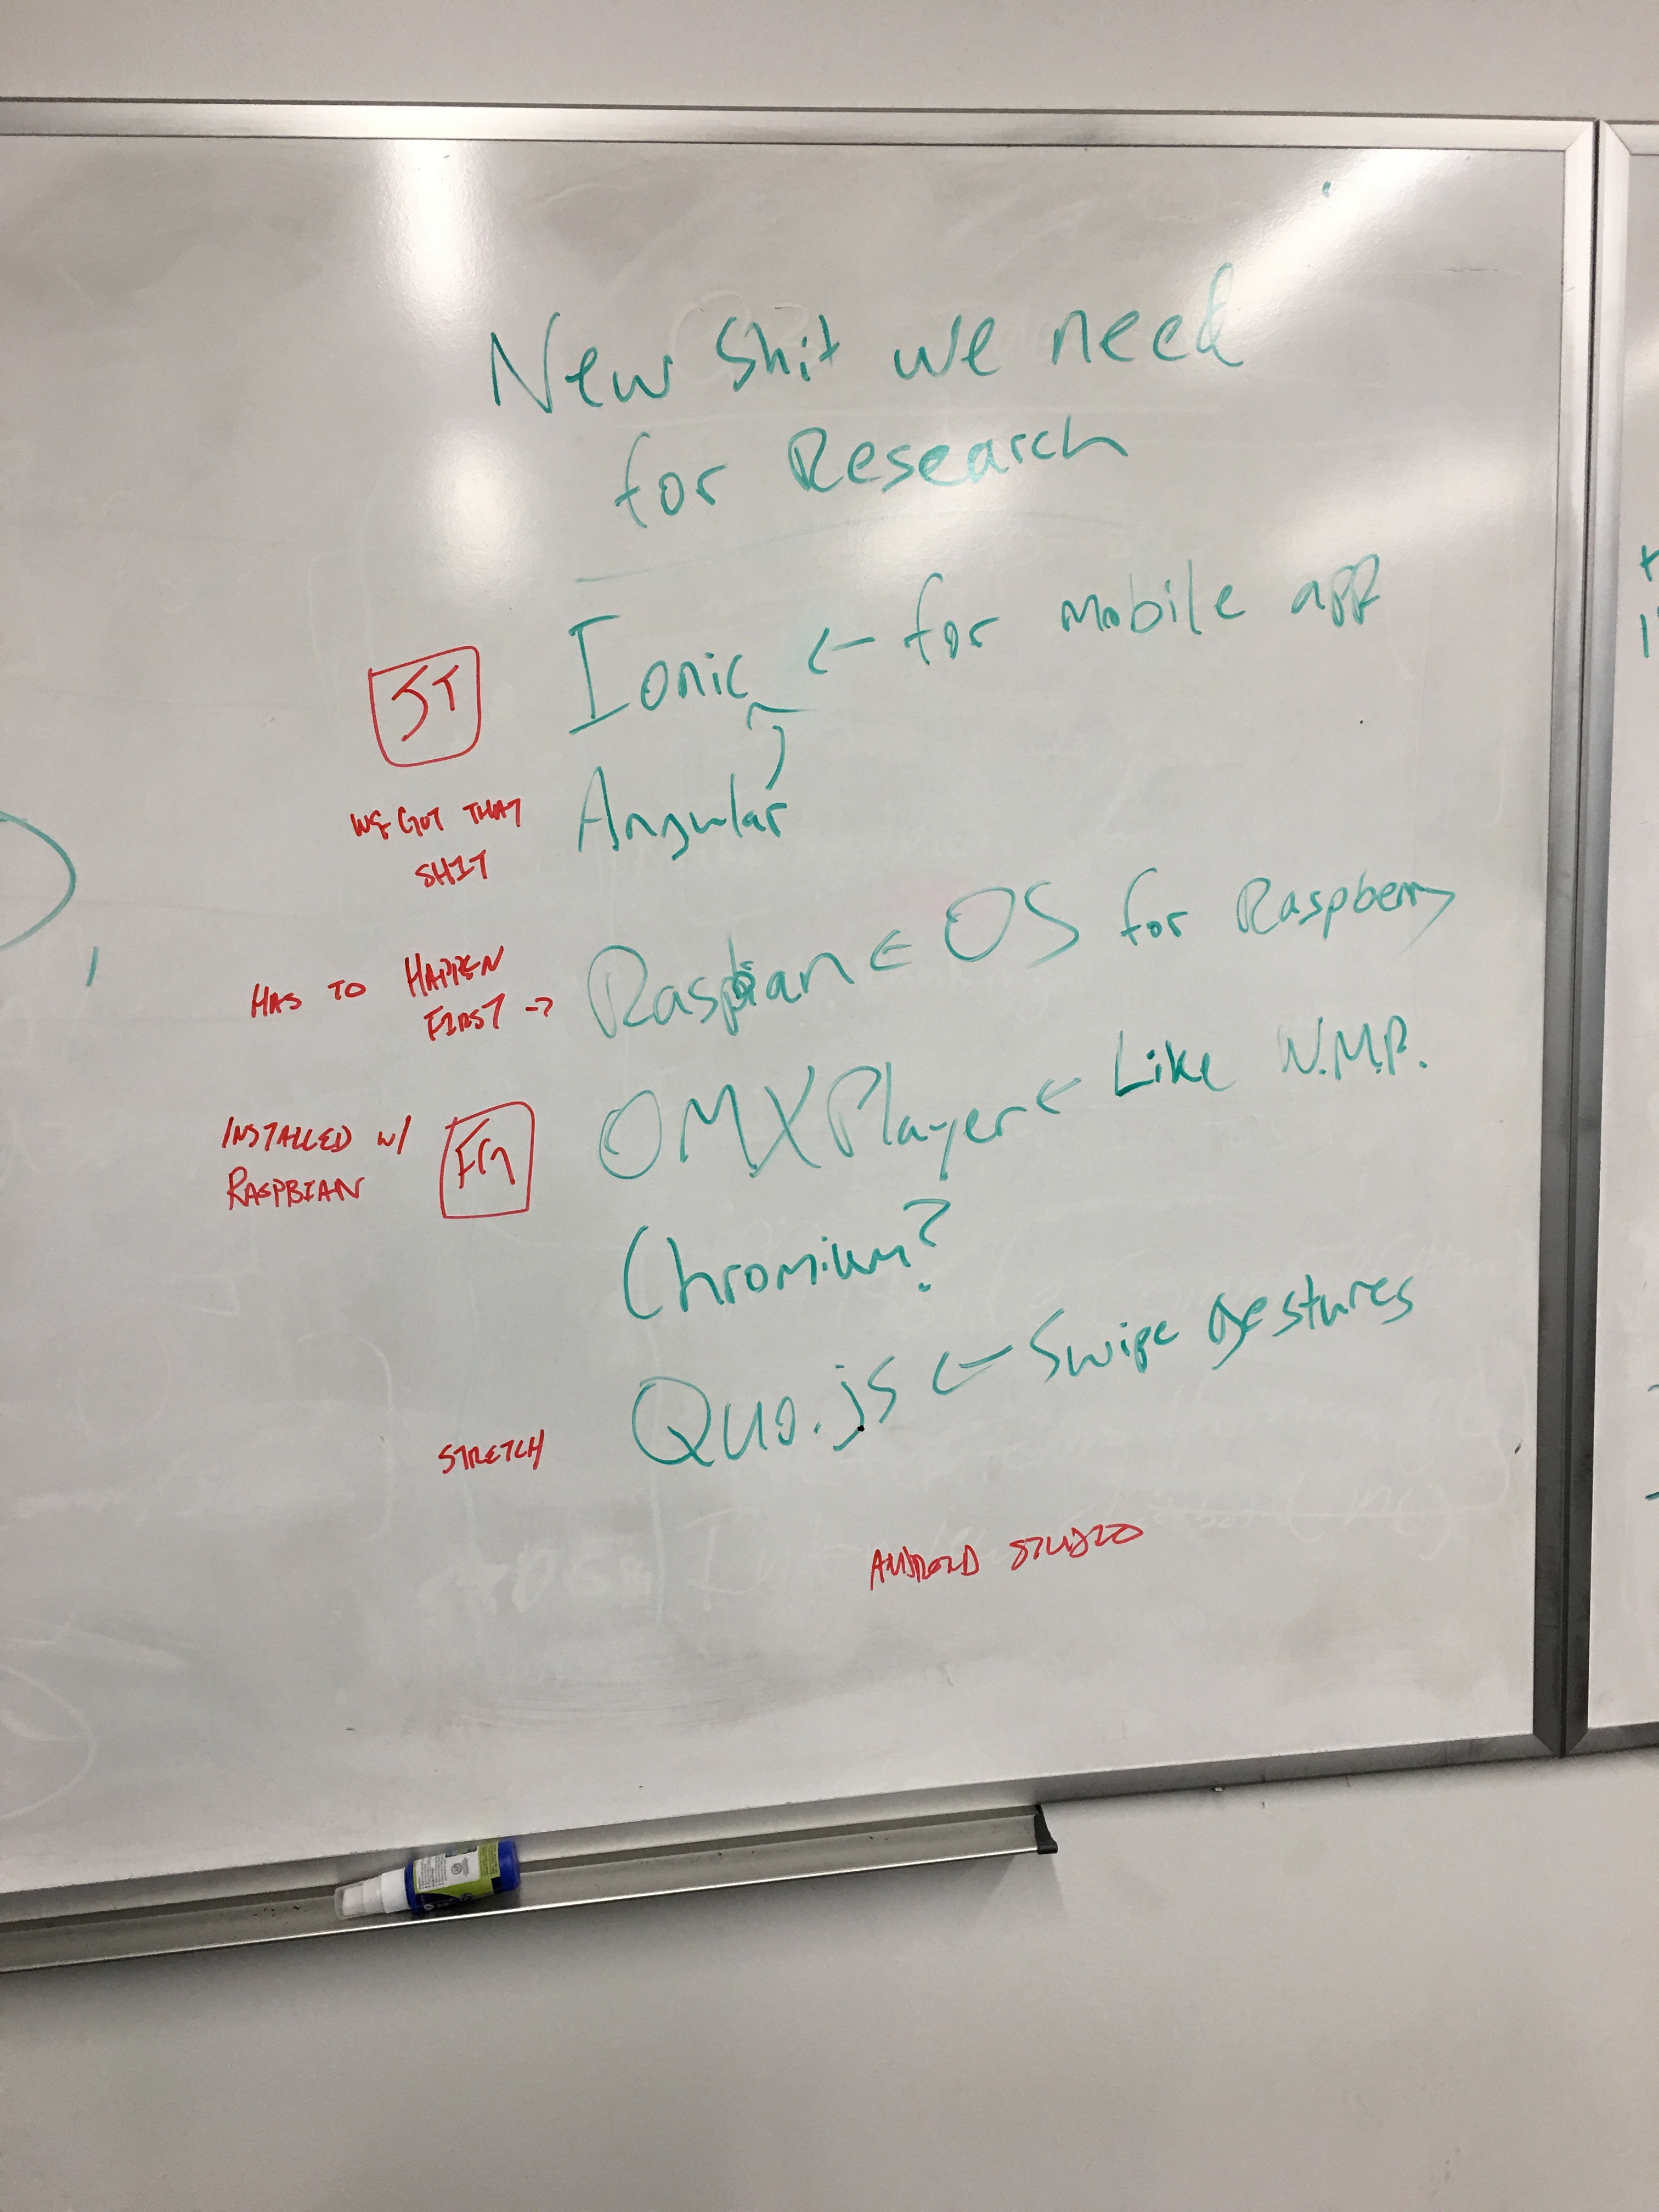 New Shit we need
for Research
JT
Ionic ← for mobile app
WE GOT THAT
SHIT
Angular
HAS TO HAPPEN
FIRST →
Raspbian ← OS for Raspberry
INSTALLED W/
RASPBIAN
FM
OMXPlayer ← Like W.M.P.
Chromium?
STRETCH
Quo.js ← Swipe gestures
ANDROID STUDIO